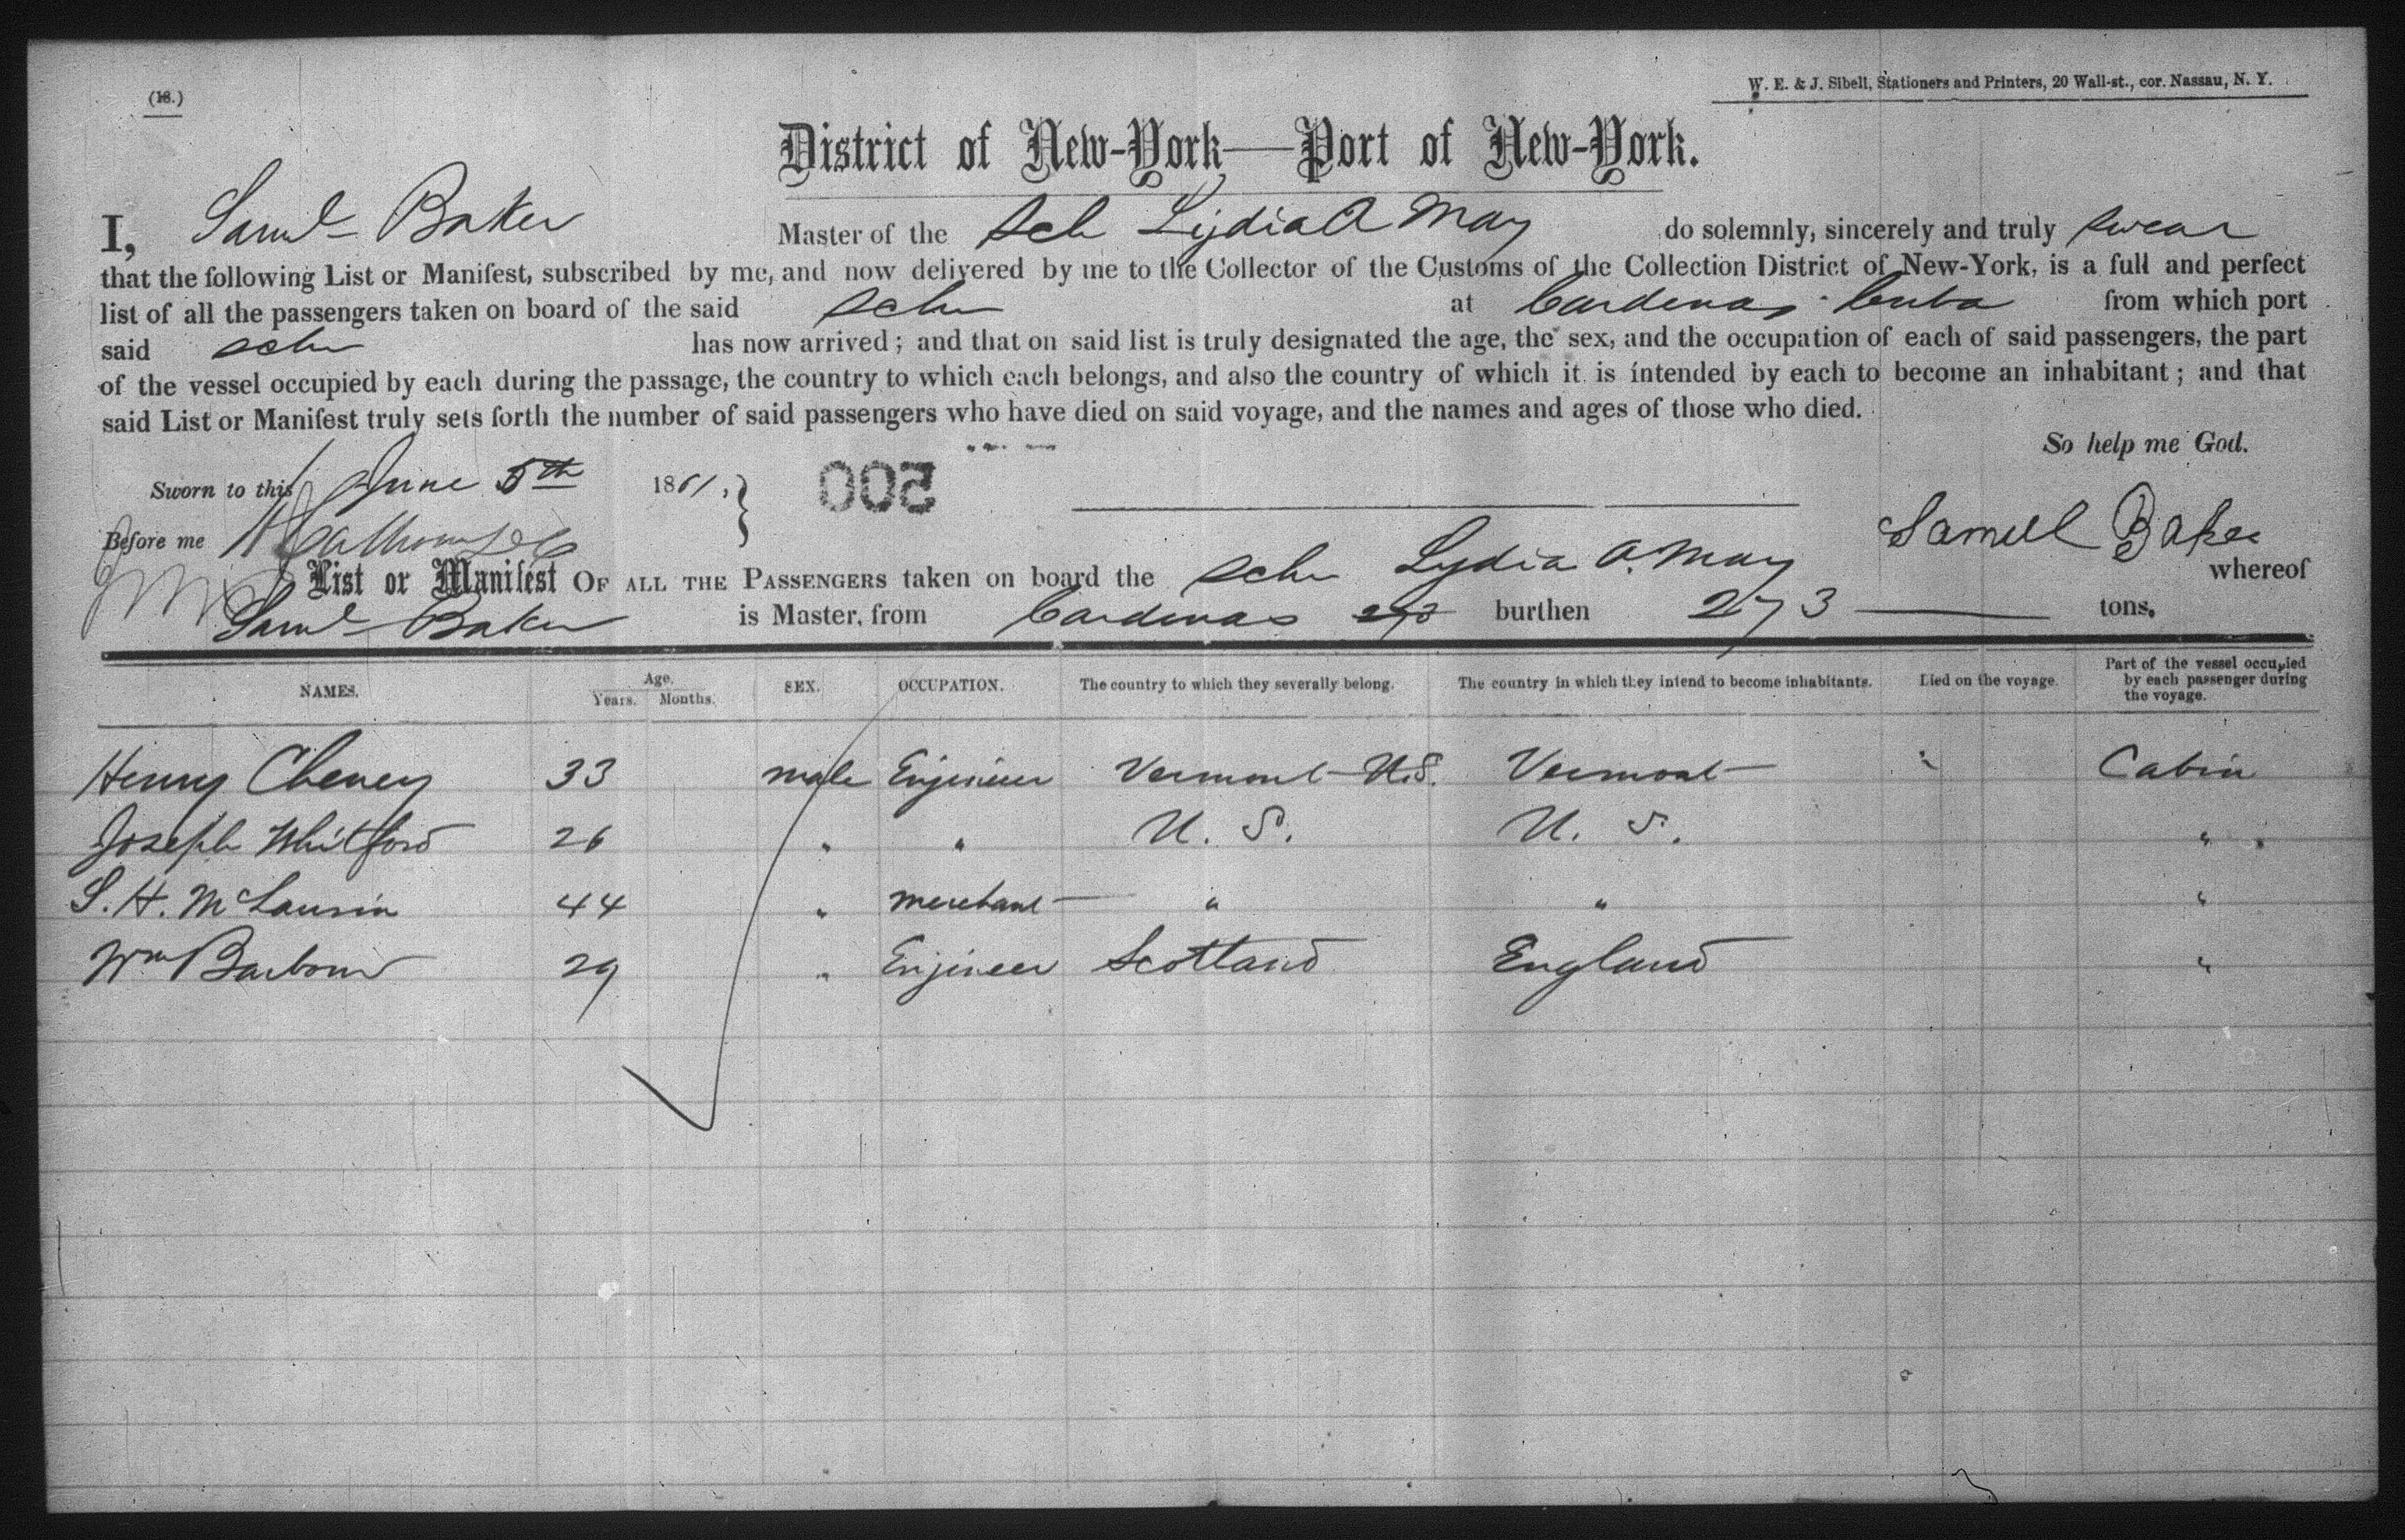 (18.)
W. E. & J. Sibell, Stationers and Printers, 20 Wall-st., cor. Nassau, N. Y.
District of New-York—Port of New-York.
I, Saml Baker Master of the Sch Lydia A May do solemnly, sincerely and truly swear
that the following List or Manifest, subscribed by me, and now delivered by me to the Collector of the Customs of the Collection District of New-York, is a full and perfect
list of all the passengers taken on board of the said schr at Cardenas Cuba from which port
said schr has now arrived; and that on said list is truly designated the age, the sex, and the occupation of each of said passengers, the part
of the vessel occupied by each during the passage, the country to which each belongs, and also the country of which it is intended by each to become an inhabitant; and that
said List or Manifest truly sets forth the number of said passengers who have died on said voyage, and the names and ages of those who died.
So help me God.
Sworn to this June 5th 1861,
500
Samuel Baker
Before me
List or Manifest OF ALL THE PASSENGERS taken on board the schr Lydia A. May whereof
Saml Baker is Master, from Cardenas 273 burthen 273 tons.
NAMES. Age. Years. Months. SEX. OCCUPATION. The country to which they severally belong. The country in which they intend to become inhabitants. Died on the voyage. Part of the vessel occupied by each passenger during the voyage.
Henry Cheney 33 male Engineer Vermont U.S. Vermont " Cabin
Joseph Whitford 26 " " U. S. U. S. "
S. H. McLaurin 44 " merchant " " "
Wm Barbour 29 " Engineer Scotland England "